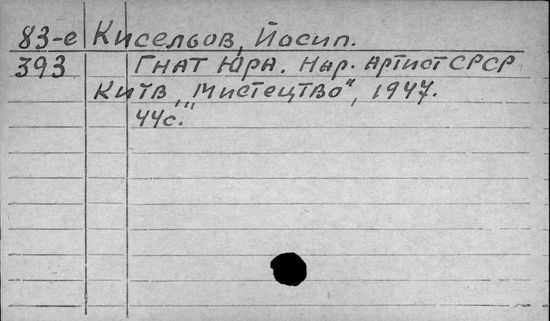 83-е Кисельов, Йосип.
393 Гнат Юра. Нар. Артист СРСР
Київ, "Мистецтво", 1947.
44с.